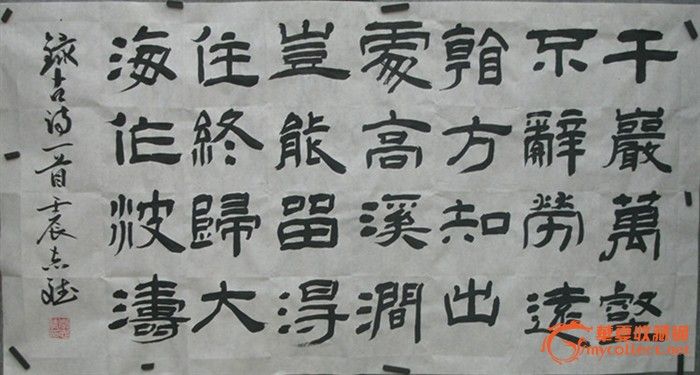 千巖萬壑
不辭勞遠
看方知出
處高溪澗
豈能留得
住終歸大
海作波濤
錄古詩一首壬辰志
華夏收藏網
mycollect.net